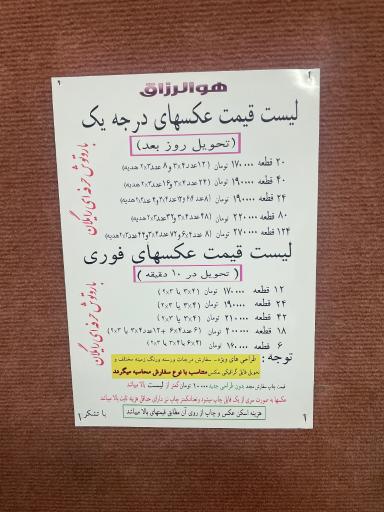 هوالرزاق
لیست قیمت عکسهای درجه یک
(تحویل روز بعد)
۲۰ قطعه ۱۷۰۰۰۰ تومان (۱۲عدد۳x۴ و۸عدد۲x۳هدیه)
۴۰ قطعه ۱۹۰۰۰۰ تومان (۲۴عدد۳x۴و۱۶عدد۲x۳هدیه)
۲۴ قطعه ۱۹۰۰۰۰ تومان
۸۰ قطعه ۲۲۰۰۰۰ تومان (۴۸عدد۳x۴و۳۲عدد۲x۳هدیه)
۱۲۴ قطعه ۲۷۰۰۰۰ تومان (۸عدد۶x۴ و۷۲عدد۳x۴و۴۴عدد۲x۳هدیه)
بارتوش حرفه ای رایگان
لیست قیمت عکسهای فوری
(تحویل در ۱۰ دقیقه)
۱۲ قطعه ۱۷۰۰۰۰ تومان (۳x۴ یا ۲x۳)
۲۴ قطعه ۱۹۰۰۰۰ تومان (۳x۴ یا ۲x۳)
۴۲ قطعه ۲۱۰۰۰۰ تومان (۳x۴ یا ۲x۳)
۱۸ قطعه ۲۰۰۰۰۰ تومان (۶عدد۶x۴ +۱۲عدد۳x۴ یا ۲x۳)
۶ قطعه ۱۶۰۰۰۰ تومان (۶x۴ یا۳x۴ یا ۲x۳)
بارتوش حرفه ای رایگان
توجه : طراحی های ویژه- سفارش درجات وروسه ورنگ زمینه مختلف و
تحویل فایل گرافیکی عکس متناسب با نوع سفارش محاسبه میگردد
قیمت چاپ سفارش مجدد بدون طراحی جدید ۱۰۰۰۰ تومان کمتر از لیست بالا میباشد
عکسها به صورت سری از یک فایل چاپ میشود وتعدادکمتر چاپ نیز دارای حداقل هزینه ثابت بالا میباشد
هزینه اسکن عکس و چاپ از روی آن مطابق قیمتهای بالا میباشد
با تشکر